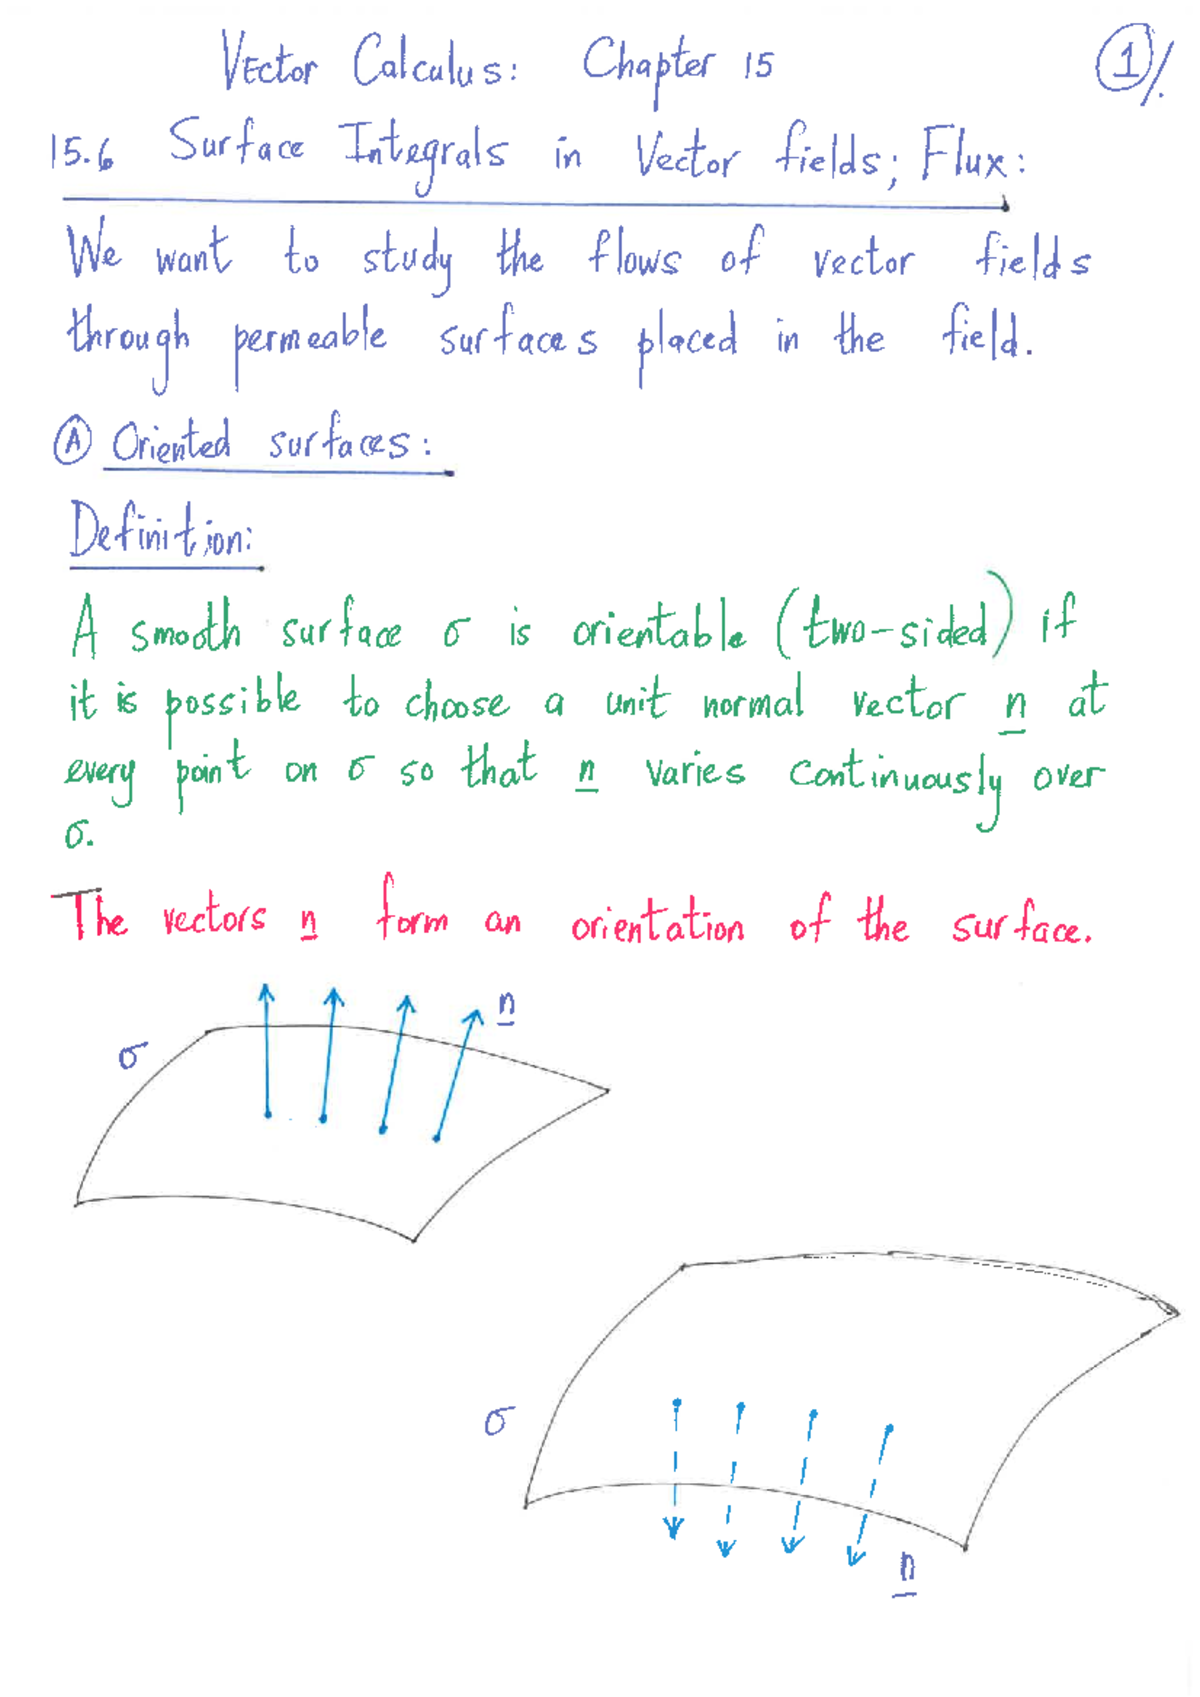 Vector Calculus: Chapter 15
1/.
15.6 Surface Integrals in Vector fields; Flux:
We want to study the flows of vector fields
through permeable surfaces placed in the field.
A Oriented surfaces:
Definition:
A smooth surface σ is orientable (two-sided) if
it is possible to choose a unit normal vector n at
every point on σ so that n varies continuously over
σ.
The vectors n form an orientation of the surface.
n
σ
σ
n